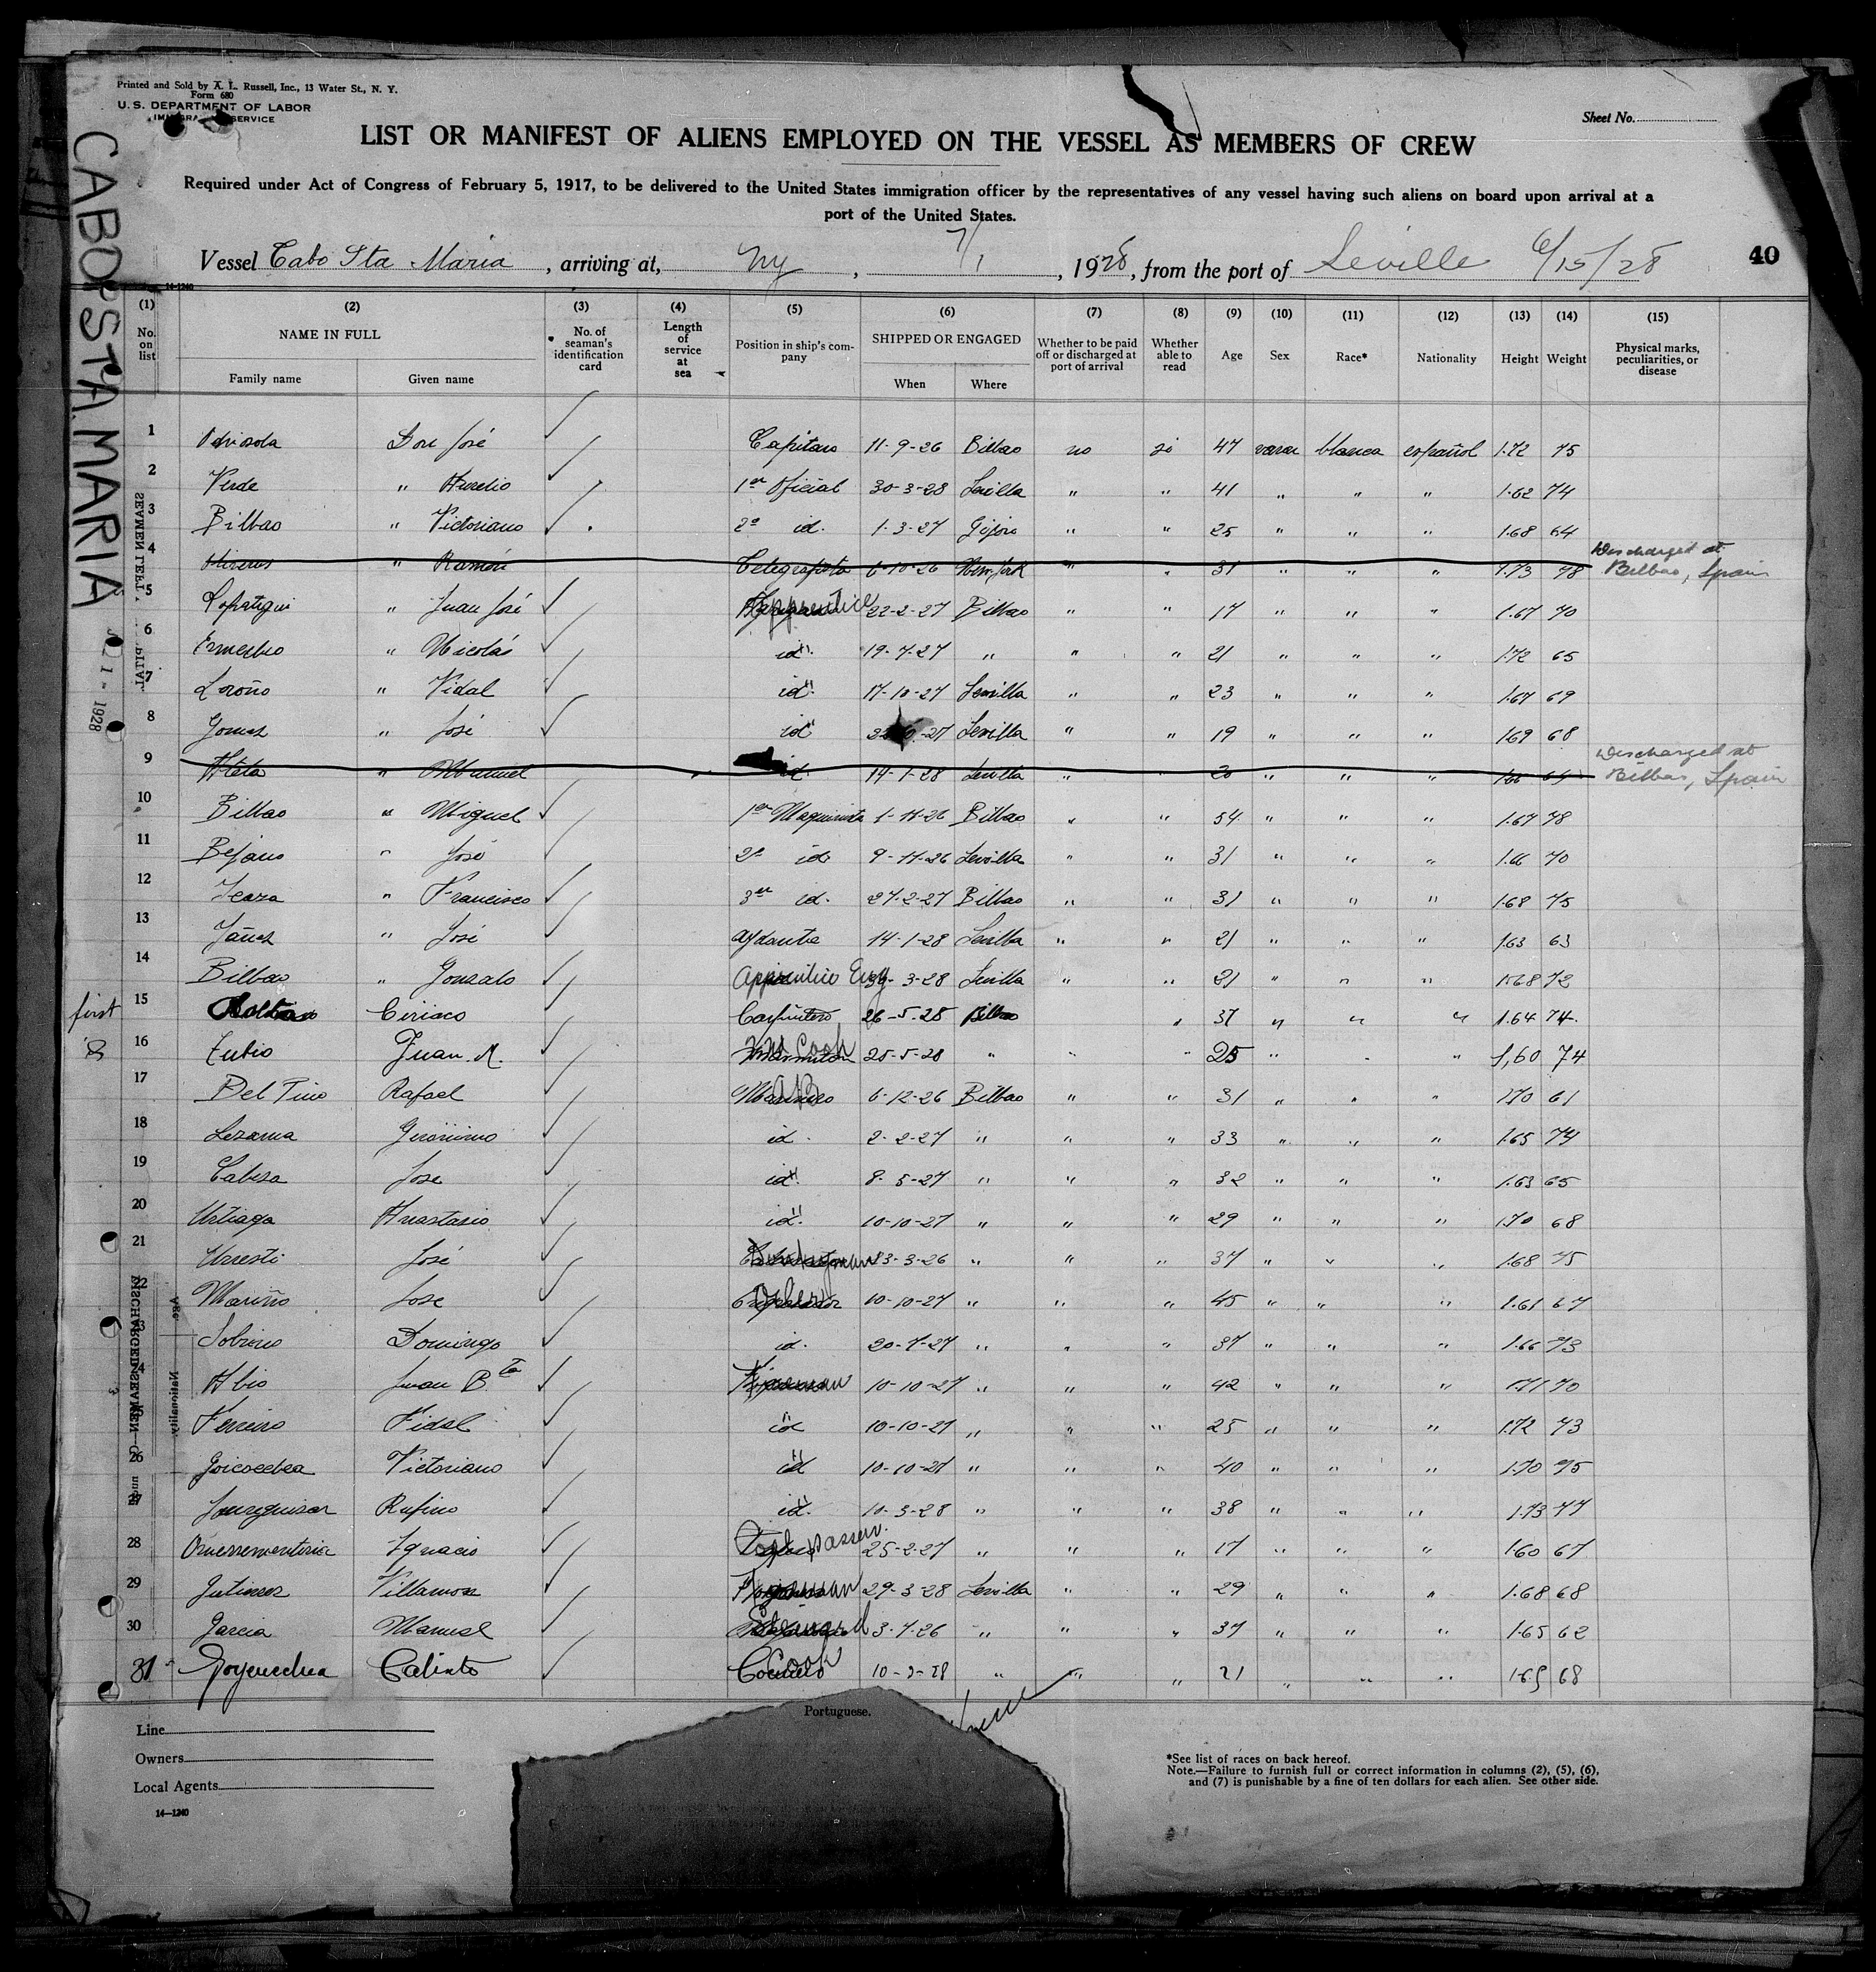 Printed and Sold by A. L. Russell, Inc., 13 Water St., N. Y.
Form 680
U. S. DEPARTMENT OF LABOR
SERVICE
Sheet No.
LIST OR MANIFEST OF ALIENS EMPLOYED ON THE VESSEL AS MEMBERS OF CREW
Required under Act of Congress of February 5, 1917, to be delivered to the United States immigration officer by the representatives of any vessel having such aliens on board upon arrival at a
port of the United States.
Vessel Cabo Sta Maria, arriving at, Ny, 7/1, 1928, from the port of Seville 6/15/28
40
CABO STA MARIA
14-1240
(1) No. on list
(2) NAME IN FULL
Family name Given name
(3) No. of seaman's identification card
(4) Length of service at sea
(5) Position in ship's company
(6) SHIPPED OR ENGAGED
When Where
(7) Whether to be paid off or discharged at port of arrival
(8) Whether able to read
(9) Age
(10) Sex
(11) Race*
(12) Nationality
(13) Height
(14) Weight
(15) Physical marks, peculiarities, or disease
1 Don José Capitan 11-9-26 Bilbao no si 47 varon blanca español 1.72 75
2 Verde " Aurelio 1er Oficial 30-3-28 Sevilla " " 41 " " " 1.62 74
3 Bilbao " Victoriano 2º id. 1-3-27 Gijón " " 25 " " " 1.68 64
4 " Ramón Telegrafista 6-10-26 New-York " " 31 " " " 1.73 78 Discharged at Bilbao, Spain
5 " Juan José Apprentice 22-2-27 Bilbao " " 17 " " " 1.67 70
6 " Nicolás id. 19-7-27 " " " 21 " " " 1.72 65
7 Loroño " Vidal id. 17-10-27 Sevilla " " 23 " " " 1.67 69
8 Gomez " José id Sevilla " " 19 " " " 1.69 68
9 " Manuel id. 14-1-28 Sevilla " 20 " " " Discharged at Bilbao, Spain
10 Bilbao " Miguel 1er Maquinista 1-11-26 Bilbao " " 54 " " " 1.67 78
11 Bejano " José 2º id 9-11-26 Sevilla " " 31 " " " 1.66 70
12 " Francisco 3er id. 27-2-27 Bilbao " " 31 " " " 1.68 75
13 Yañez " José 14-1-28 Sevilla " " 21 " " " 1.63 63
14 Bilbao " Gonzalo Apprentice Eng 3-28 Sevilla " " 21 " " " 1.68 72
first
15 Ciriaco Carpintero 26-5-28 Bilbao " 37 " " " 1.64 74
16 Zubio Juan M. Cook 25-5-28 " " " 25 " " " 1,60 74
17 Del Pino Rafael Marinero AB 6-12-26 Bilbao " " 31 " " " 1.70 61
18 Lezama Geronimo id. 2-2-27 " " " 33 " " " 1.65 74
19 Cabeza Jose id. 8-5-27 " " " 32 " " " 1.63 65
20 Urtiaga Anastasio id. 10-10-27 " " " 29 " " " 1.70 68
21 Urresti José 3-3-26 " " " 37 " " " 1.68 75
22 Mariño Jose Oiler 10-10-27 " " " 45 " " " 1.61 67
23 Sobrino Domingo id. 20-7-27 " " " 37 " " " 1.66 73
24 Albio Juan B.ta Fireman 10-10-27 " " " 42 " " " 1.71 70
25 Ferreiro Fidel id 10-10-27 " " " 25 " " " 1.72 73
26 Goicoechea Victoriano id 10-10-27 " " " 40 " " " 1.70 75
27 Rufino id. 10-3-28 " " " 38 " " " 1.73 77
28 Ignacio Coal passer 25-2-27 " " " 17 " " " 1.60 67
29 Gutierrez Fireman 29-3-28 Sevilla " " 29 " " " 1.68 68
30 Garcia Manuel Steward 3-7-26 " " " 37 " " " 1.65 62
31 Goyenechea Calixto Cocinero Cook " " " 21 " " " 1.65 68
Portuguese.
Line
Owners
Local Agents
14—1240
*See list of races on back hereof.
Note.—Failure to furnish full or correct information in columns (2), (5), (6),
and (7) is punishable by a fine of ten dollars for each alien. See other side.